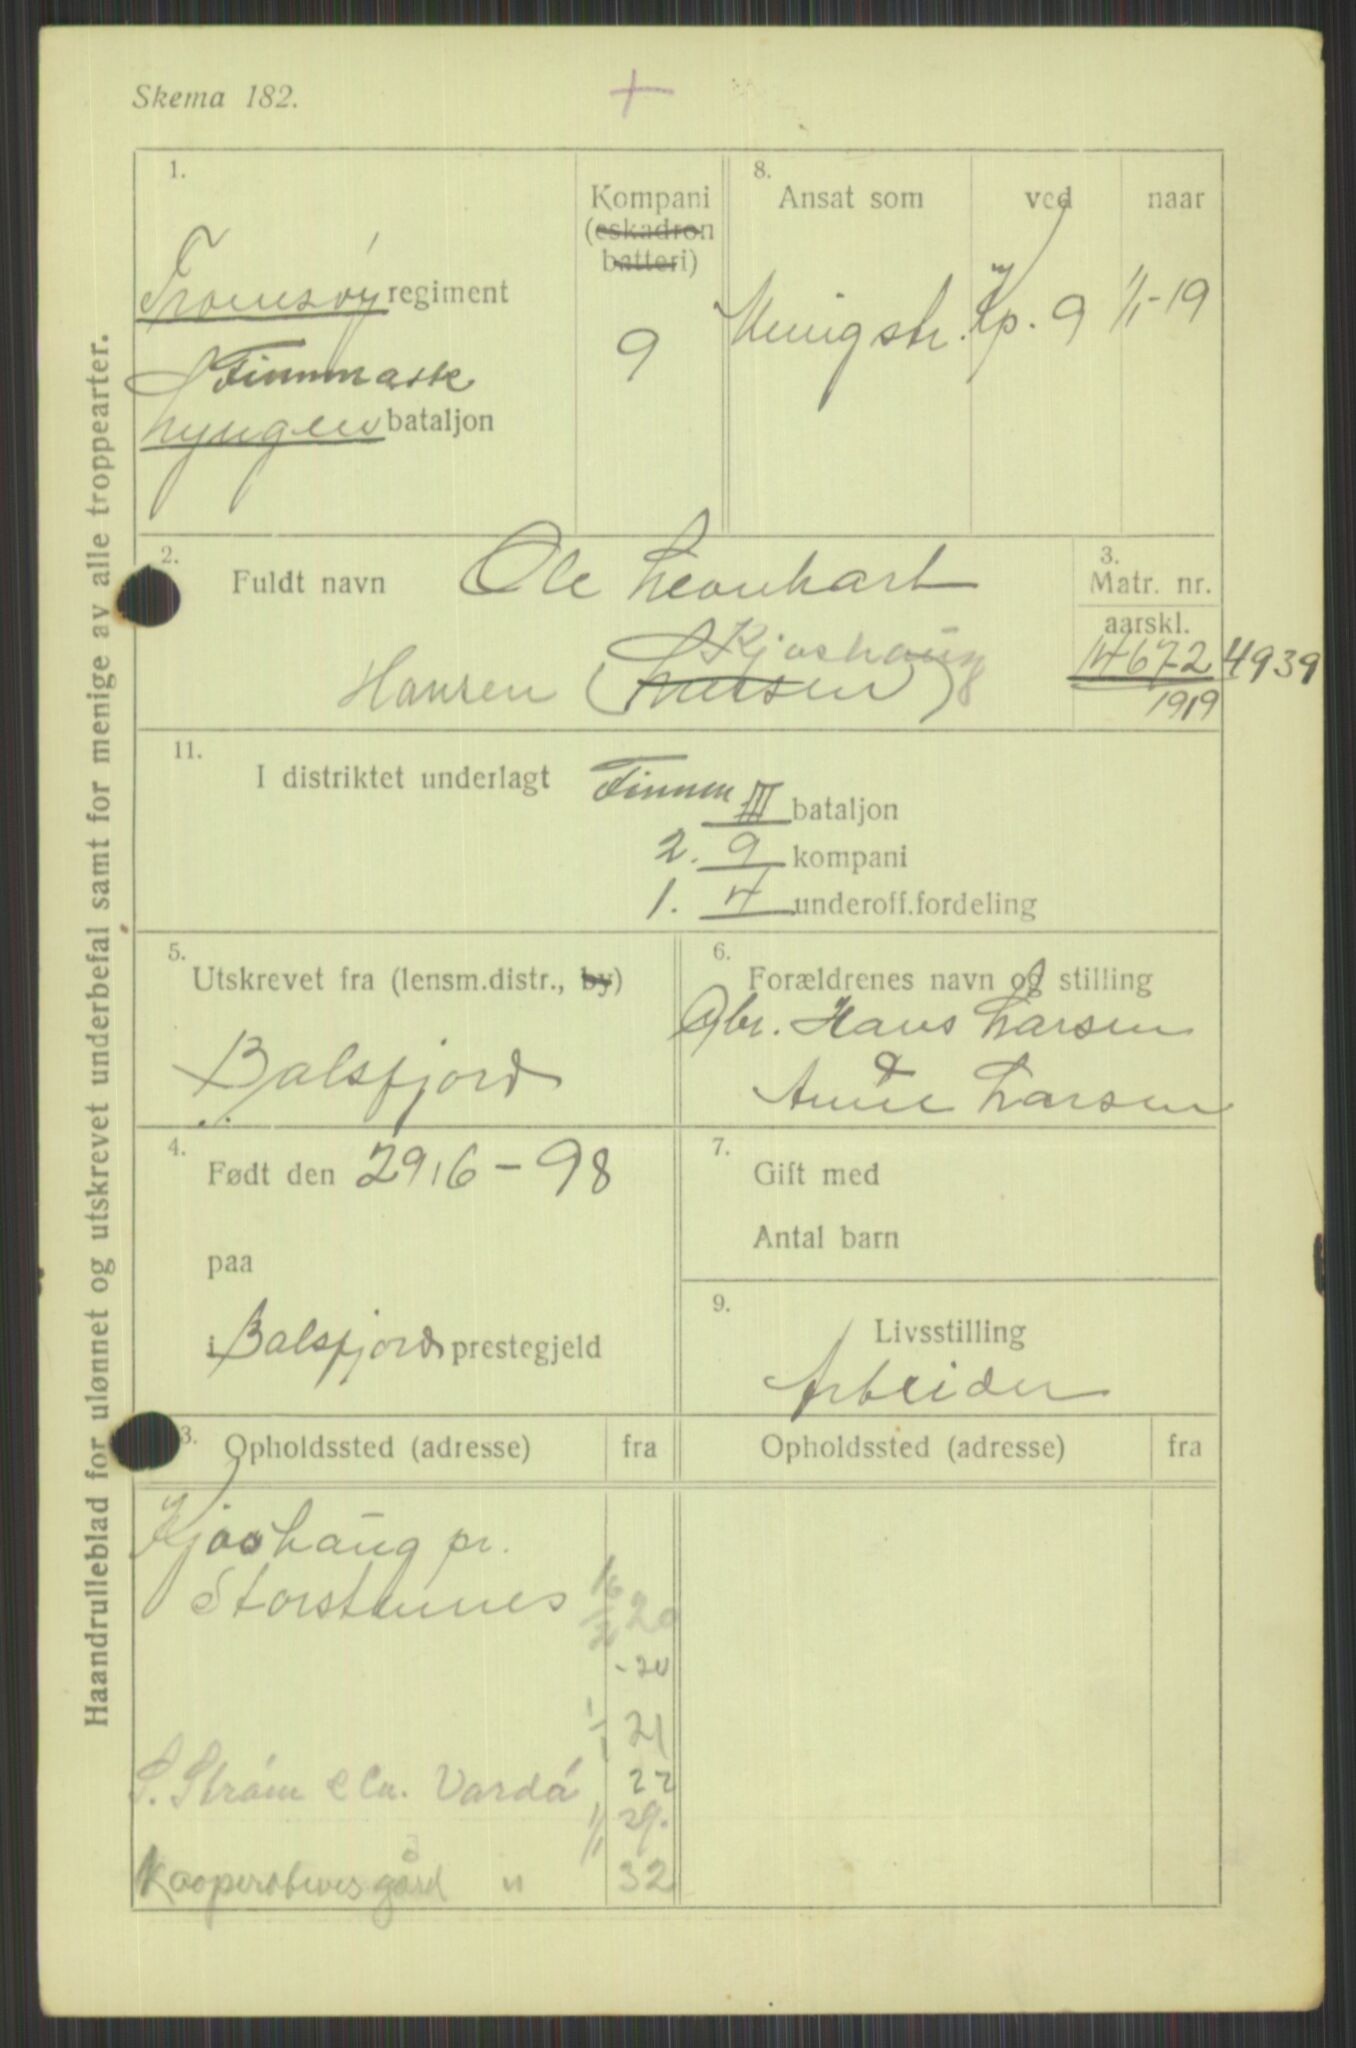 Skema 182.
+
Haandrulleblad for ulønnet og utskrevet underbefal samt for menige av alle troppearter.
1.
Tromsøy regiment
Finnmark
Lyngen bataljon
Kompani
(eskadron
batteri)
9
8.
Ansat som ved naar
Menig str. Kp. 9 1/1-19
2.
Fuldt navn Ole Leonhart
Kjoshaug
Hansen (Larsen)
3.
Matr. nr.
aarskl.
14672 4939
1919
11.
I distriktet underlagt Finnm III bataljon
2. 9 kompani
1. 4 underoff.fordeling
5.
Utskrevet fra (lensm.distr., by)
Balsfjord
6.
Forældrenes navn og stilling
Gbr. Hans Larsen
Anne Larsen
4.
Født den 29/6-98
paa
i Balsfjord prestegjeld
7.
Gift med
Antal barn
9.
Livsstilling
Arbeider
3.
Opholdssted (adresse) fra
Opholdssted (adresse) fra
Kjoshaug pr.
Storstennes
20
-20
1/1 21
S. Strøm & Co. Vardø 22
1/1 29.
Kooperativesgård " 32